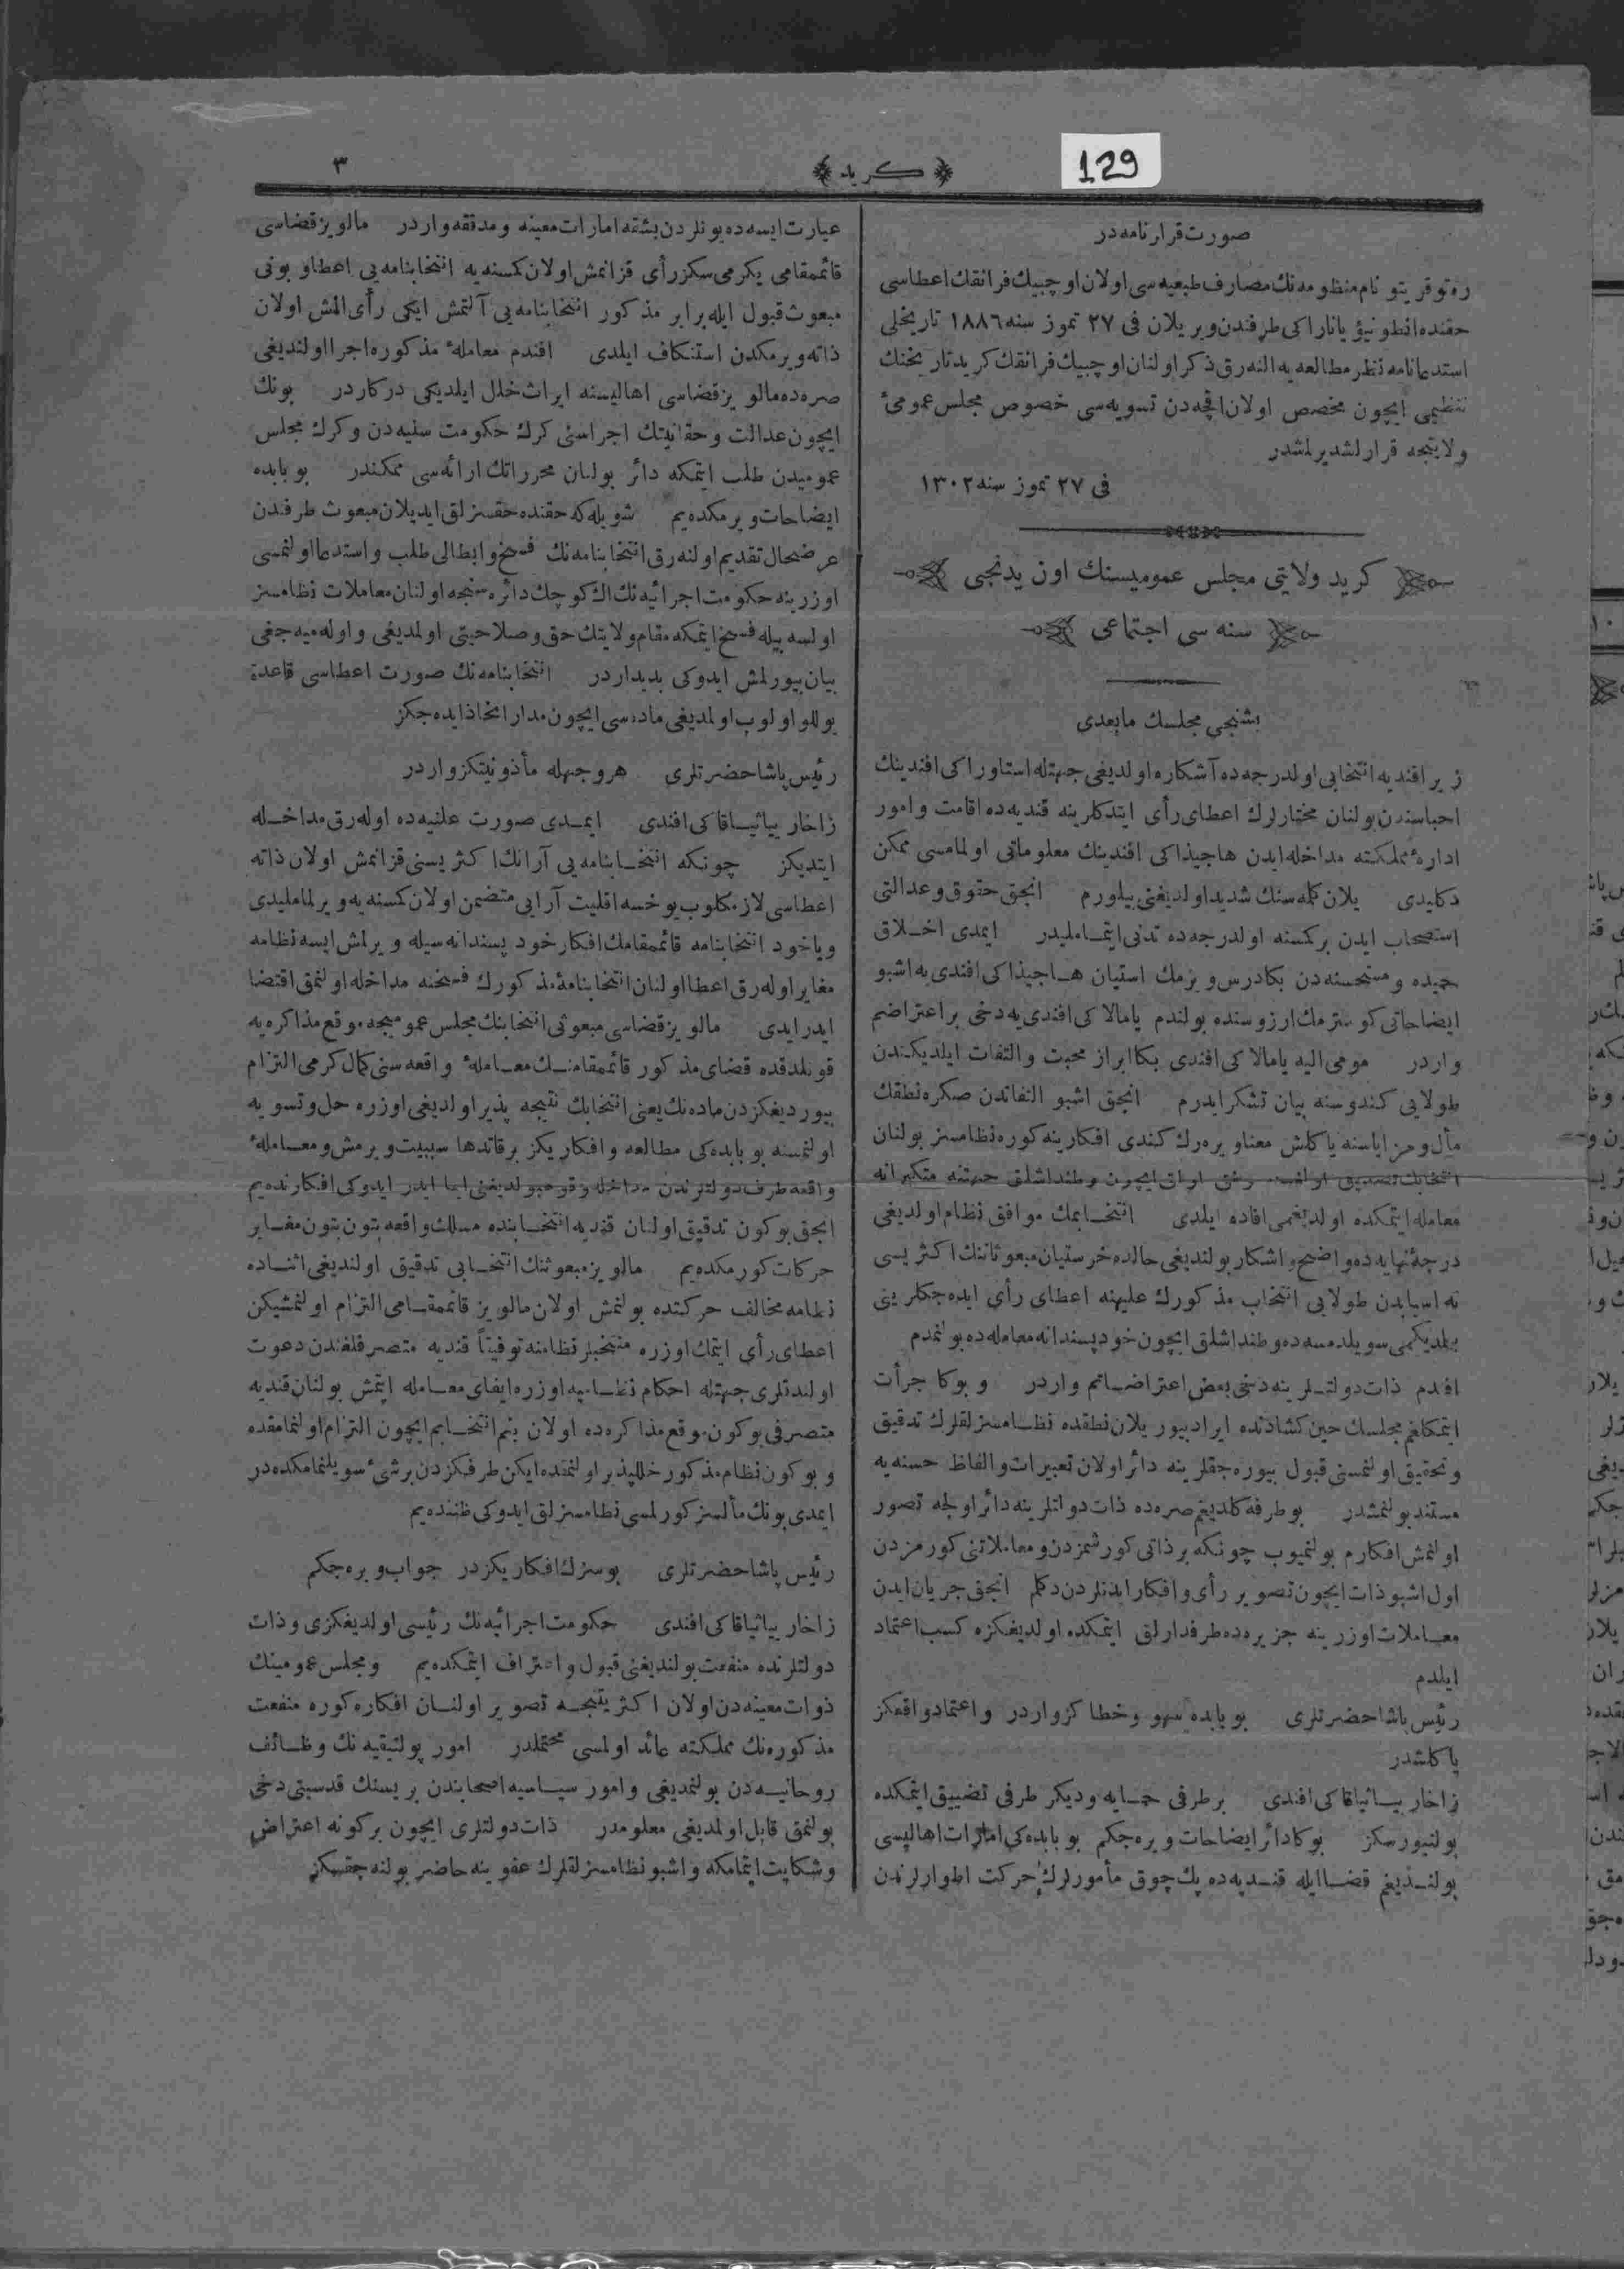 129
﴿ كريد ﴾
٣
صورت قرارنامه‌در
ره‌توقريتو نام منظومه‌نك مصارف طبعيه‌سى اولان اوچبيك فرانقك اعطاسى
حقنده انطونيؤ ياناراكى طرفندن ويريلان فى ٢٧ تموز سنه ١٨٨٦ تاريخلى
استدعانامه نظر مطالعه‌يه النه‌رق ذكر اولنان اوچبيك فرانقك كريد تاريخنك
تنظيمى ايچون مخصص اولان اقچه‌دن تسويه‌سى خصوص مجلس عمومئ
ولايتجه قرارلشديرلمشدر
فى ٢٧ تموز سنه ١٣٠٢
كريد ولايتى مجلس عموميسنك اون يدنجى
سنه سى اجتماعى
بشنجى مجلسك مابعدى
زيرا قنديه انتخابى اولدرجه‌ده آشكاره اولديغى جهتله استاوراكى افندينك
احباسندن بولنان مختارلرك اعطاى رأى ايتدكلرينه قنديه‌ده اقامت و امور
ادارهٔ مملكته مداخله ايدن هاجيذاكى افندينك معلوماتى اولمامسى ممكن
دكليدى يلان كله‌سنك شديد اولديغنى بيلورم انجق حقوق وعدالتى
استصحاب ايدن بركمسنه اولدرجه‌ده تدنى ايتماملیدر ايمدى اخلاق
حميده و مستحسنه‌دن بكا درس ويرمك استيان هاجيذاكى افندى‌يه اشبو
ايضاحاتى كوسترمك ارزوسنده بولندم يامالاكى افندى‌يه دخى براعتراضم
واردر مومى اليه يامالاكى افندى بكا ابراز محبت والتفات ايلديكندن
طولايى كندوسنه بيان تشكر ايدرم انجق اشبو التفاتدن صكره نطقك
مأل و مزاياسنه ياكلش معنا ويره‌رك كندى افكارينه كوره نظامسز بولنان
معامله ايتمكده اولديغمى افاده ايلدى انتخابمك موافق نظام اولديغى
درجهٔ نهايه‌ده واضح و اشكار بولنديغى حالده خرستيان مبعوثاننك اكثريسى
نه اسبابدن طولايى انتخاب مذكورك عليهنه اعطاى رأى ايده‌جكلرينى
بيلديكمى سويلدمسه‌ده وطنداشلق ايچون خودپسندانه معامله‌ده بولنمدم
افندم ذات دولتلرينه دخى بعض اعتراضاتم واردر و بوكا جرأت
ايتمكلغم مجلسك حين كشادنده ايراد بيوريلان نطقده نظامسزلقلرك تدقيق
و تحقيق اولنمسنى قبول بيوره‌جقلرينه دائر اولان تعبيرات والفاظ حسنه‌يه
مستند بولنمشدر بو طرفه كلديغم صره‌ده ذات دولتلرينه دائر اولجه تصور
اولنمش افكارم بولنميوب چونكه برذاتى كورشمزدن و معاملاتنى كورمزدن
اول اشبو ذات ايچون تصوير رأى و افكار ايدنلردن دكلم انجق جريان ايدن
معاملات اوزرينه جزيره‌ده طرفدارلق ايتمكده اولديغكزه كسب اعتماد
ايلدم
رئيس پاشا حضرتلرى بو بابده سهو و خطاكز واردر و اعتماد واقعكز
ياكلشدر
زاخار بياثياقاكى افندى برطرفى حمايه وديكر طرفى تضييق ايتمكده
بولنيورسكز بوكا دائر ايضاحات ويره‌جكم بو بابده‌كى امارات اهاليسى
بولنديغم قضا ايله قنديه‌ده پك چوق مأمورلرك حركت اطوارلرندن
عبارت ايسه‌ده بونلردن بشقه امارات معينه و مدققه واردر مالويز قضاسى
قائممقامى يكرمى سكز رأى قزانمش اولان كمسنه‌يه انتخابنامه‌يى اعطا و بونى
مبعوث قبول ايله برابر مذكور انتخابنامه‌يى آلتمش ايكى رأى المش اولان
ذاته ويرمكدن استنكاف ايلدى افندم معاملهٔ مذكوره اجرا اولنديغى
صره‌ده مالويز قضاسى اهاليسنه ايراث خلل ايلديكى دركاردر بونك
ايچون عدالت و حقانيتك اجراسنى كرك حكومت سنيه‌دن وكرك مجلس
عموميدن طلب ايتمكه دائر بولنان محرراتك ارائه‌سى ممكندر بو بابده
ايضاحات ويرمكده‌يم شويله‌كه حقنده حقسزلق ايديلان مبعوث طرفندن
عرضحال تقديم اولنه‌رق انتخابنامه‌نك فسخ و ابطالى طلب واستدعا اولنمسى
اوزرينه حكومت اجرائيه‌نك اك كوچك دائره‌سنجه اولنان معاملات نظامسز
اولسه بيله فسخ ايتمكه مقام ولايتك حق و صلاحيتى اولمديغى و اوله‌ميه‌جغى
بيان بيورلمش ايدوكى بديداردر انتخابنامه‌نك صورت اعطاسى قاعدة
يوللو اولوب اولمديغى ماده‌سى ايچون مدار اتخاذ ايده‌جكز
رئيس پاشا حضرتلرى هروجهله مأذونيتكز واردر
زاخار بياثياقاكى افندى ايمدى صورت علنيه‌ده اوله‌رق مداخله
ايتديكز چونكه انتخابنامه‌يى آرانك اكثريسنى قزانمش اولان ذاته
اعطاسى لازمكلوب يوخسه اقليت آرايى متضمن اولان كمسنه‌يه ويرلمامليدى
وياخود انتخابنامه قائممقامك افكار خودپسندانه‌سيله ويرلمش ايسه نظامه
مغاير اوله‌رق اعطا اولنان انتخابنامهٔ مذكورك فسخنه مداخله اولنمق اقتضا
ايدر ايدى مالويز قضاسى مبعوثى انتخابنك مجلس عموميجه موقع مذاكره‌يه
قونلدقده قضاى مذكور قائممقامنك معاملهٔ واقعه‌سنى كمال كرمى التزام
بيورديغكزدن ماده‌نك يعنى انتخابك نتيجه پذير اولديغى اوزره حل وتسويه
اولنمسنه بو بابده‌كى مطالعه و افكاريكز برقاتدها سببيت ويرمش و معاملهٔ
واقعه طرف دولتلرندن مداخله وقوعبولديغنى ايما ايدر ايدوكى افكارنده‌يم
انجق بوكون تدقيق اولنان قنديه انتخابنده مسلك واقعه بتون بتون مغاير
حركات كورمكده‌يم مالويز مبعوثنك انتخابى تدقيق اولنديغى اثناده
نظامه مخالف حركتده بولنمش اولان مالويز قائممقامى التزام اولنمشيكن
اعطاى رأى ايتمك اوزره منتخبلر نظامنه توفيقاً قنديه متصرفلغندن دعوت
اولندقلرى جهتله احكام نظاميه اوزره ايفاى معامله ايتمش بولنان قنديه
متصرفى بوكون موقع مذاكره‌ده اولان بنم انتخابم ايچون التزام اولنمامقده
و بوكون نظام مذكور خللپذير اولنمقده ايكن طرفكزدن برشئ سويلنمامكده‌در
ايمدى بونك مألسز كورلمسى نظامسزلق ايدوكى ظننده‌يم
رئيس پاشا حضرتلرى بو سزك افكاريكزدر جواب ويره‌جكم
زاخار بياثياقاكى افندى حكومت اجرائيه‌نك رئيسى اولديغكزى وذات
دولتلرنده منفعت بولنديغنى قبول و اعتراف ايتمكده‌يم و مجلس عمومينك
ذوات معينه‌دن اولان اكثريتنجه تصوير اولنان افكاره كوره منفعت
مذكوره‌نك مملكته عائد اولمسى محتملدر امور پولتيقيه‌نك وظائف
روحانيه‌دن بولنمديغى و امور سياسيه اصحابندن بريسنك قدسيتى دخى
بولنمق قابل اولمديغى معلومدر ذات دولتلرى ايچون بركونه اعتراض
وشكايت ايتمامكه واشبو نظامسزلقلرك عفوينه حاضر بولنه‌جقسكز